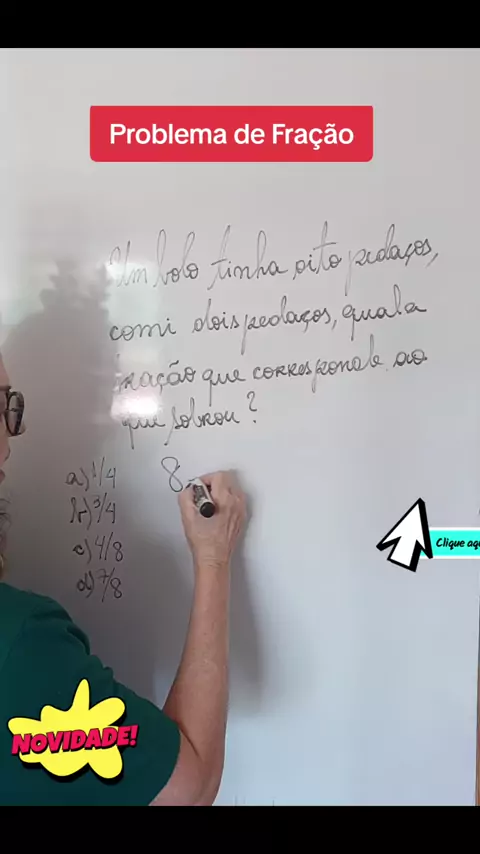 Problema de Fração
Um bolo tinha oito pedaços,
comi dois pedaços, qual a
fração que corresponde ao
que sobrou?
a) 1/4
8
b) 3/4
c) 4/8
d) 7/8
Clique aqu
NOVIDADE!